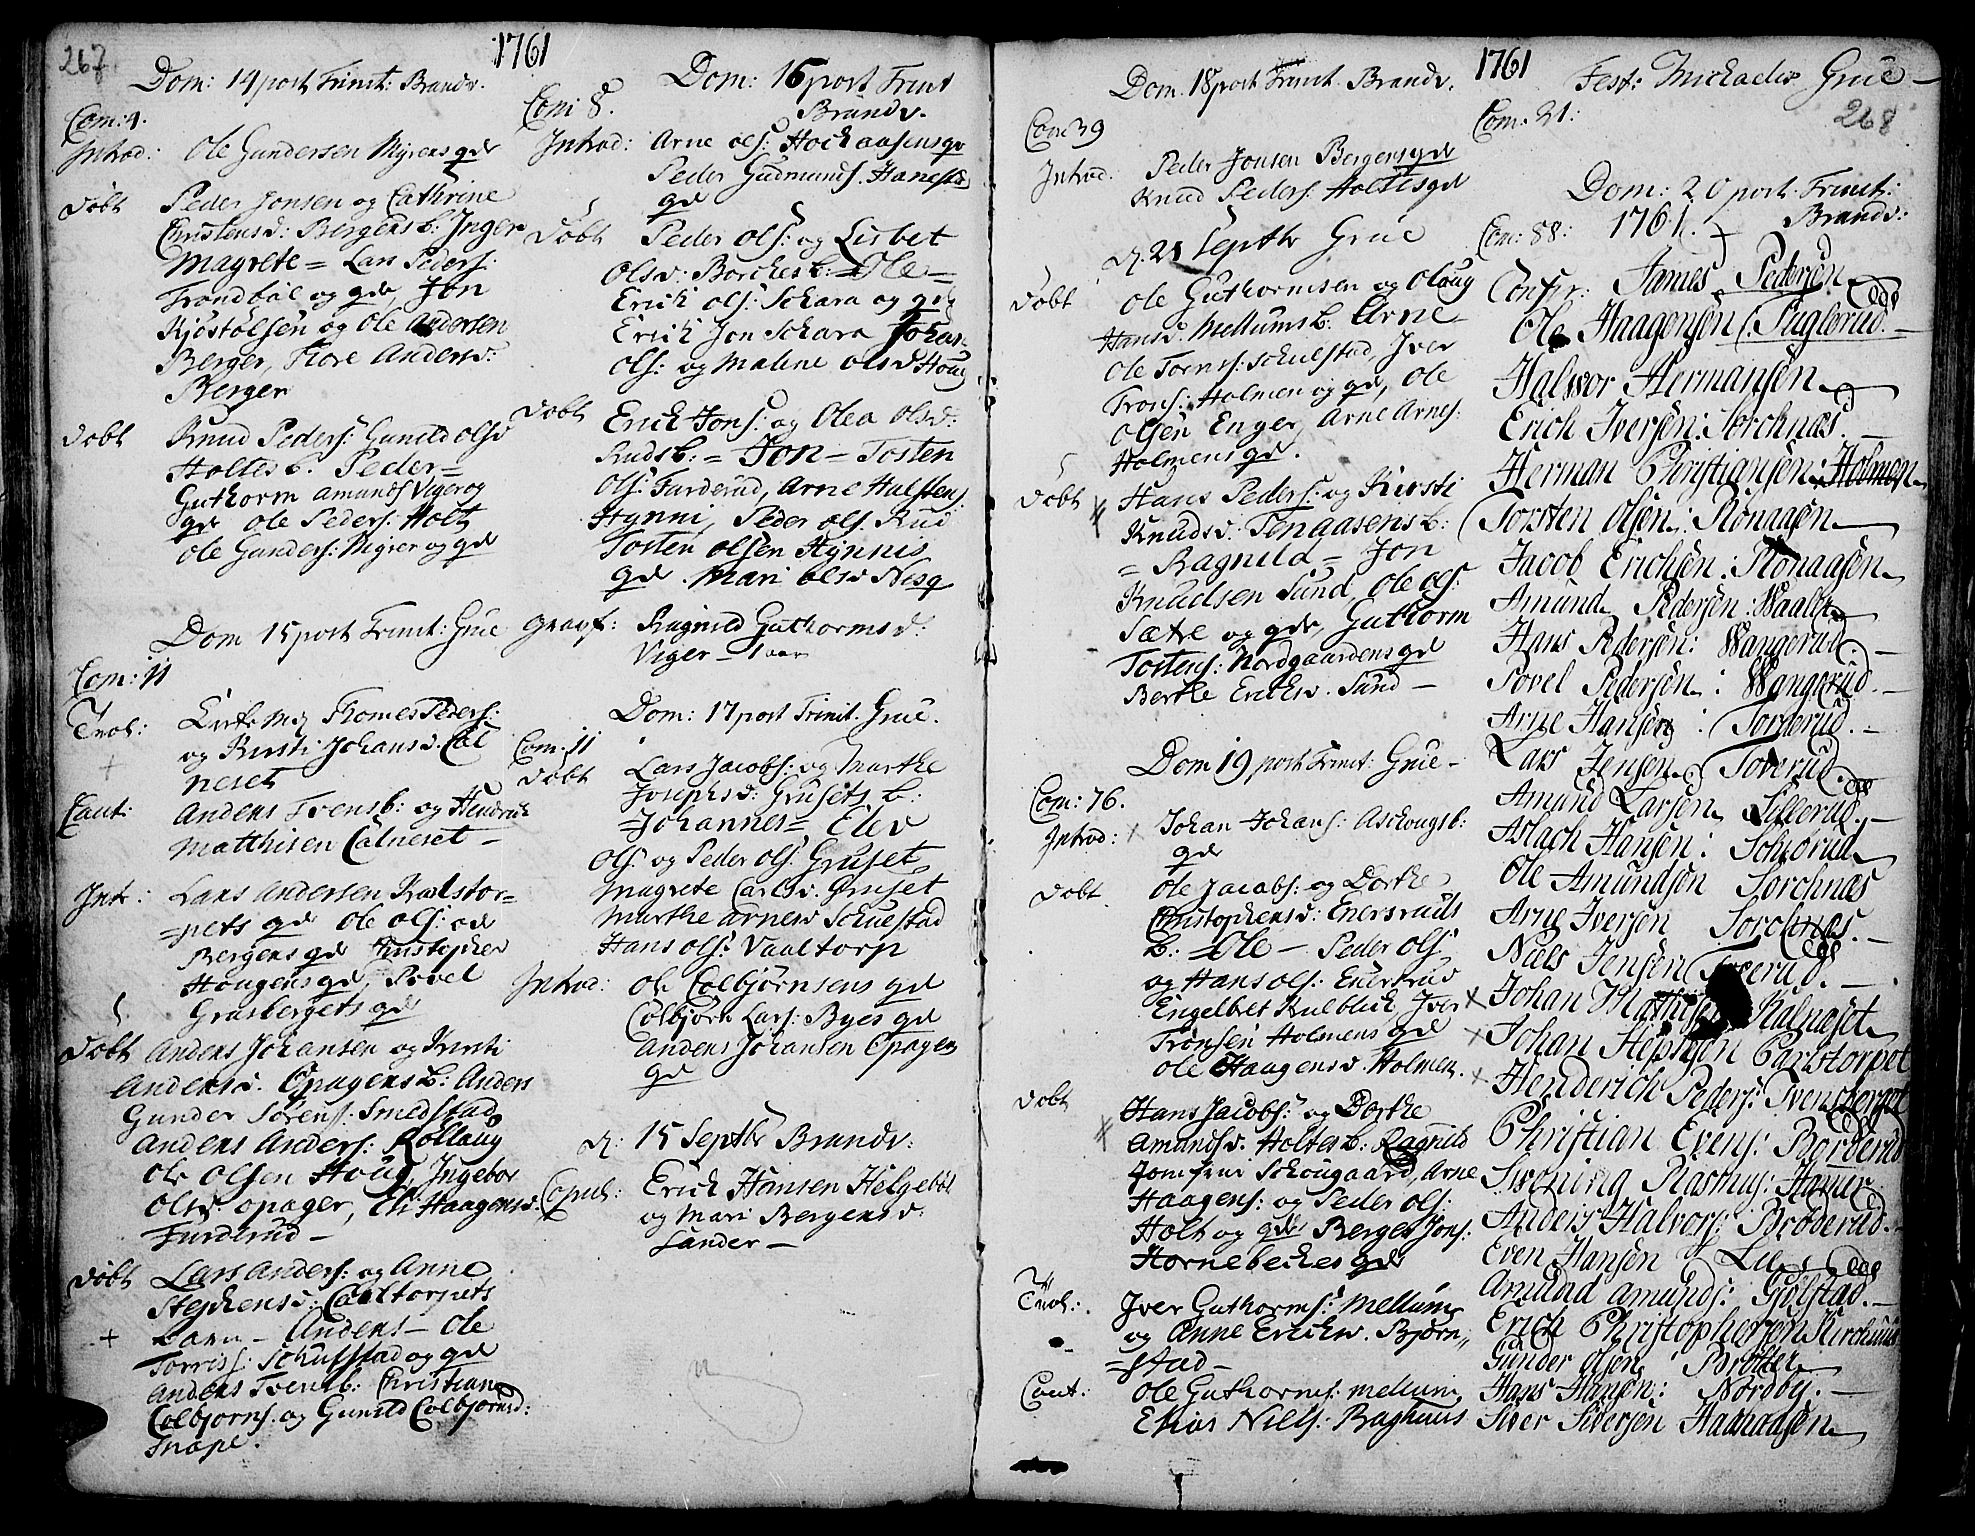 267
1761
Dom: 14 post Trinit: Brandv.
Com: 4.
Introd: Ole Gundersen Myrens qde
Döbt Peder Jonsen og Cathrine
Christensd: Bergens b: Inger
Magrete = Lars Peders:
Trondböl og qde, Jon
Kjöstolsen og Ole Andersen
Berger, Flore Andersd:
Berger
Döbt Knud Peders: Gunild olsd
Holtes b. Peder =
Guthorm Amunds Viger og
qde Ole Peders: Holt
Ole Gunders: Myrer og qde
Dom 15 post Trinit: Grue
Com: 11
Trol: Thomes Peders:
og Kirsti Johansd. Cal
neset
Caut: Anders Tvensb: og Hendrich
Matthisen Calneset —
Intr: Lars Andersen Karlstor=
=pets qde Ole ols:
Bergens qde Christopher
Hougens qde, Povel
Grasbergets qde
Döbt Anders Johansen og Kirsti
Andersd. Opagens b: Anders
Gunder Sörens: Smedstad
Anders Anders: Rollaug
Ole Olsen Houg, Ingebor
Olsd opager, Eli Haagensd.
Furderud —
Döbt Lars Anders: og Anne
Stephensd: Carltorpets
barn — Anders — Ole
Torriss: Schulstad og qde
Anders Tvensb: Christian
Colbjörns. og Gunild Colbjörnsd:
Snape.
Dom: 16 post Trinit
Brandv.
Com: 8.
Introd: Arne ols: Hochaasens qde
Peder Gudmunds. Hanestad
qde
Döbt Peder Ols: og Lisbet
Olsd: Borches b: = Ole =
Erich ols: Schara og qde
Erich Jon Schara Johan
Ols: og Maline olsd Houg
Döbt Erich Jons: og Olea Olsd:
Ruds b: = Jon = Tosten
Ols: Furderud, Arne Halstens
Hynni, Peder ols. Rud
Tosten olsen Hynnis
qde. Mari olsd
Gravf: Ragnild Guthormsd:
Viger — 1 aar
Dom: 17 post Trinit. Grue.
Com. 11
Döbt Lars Jacobs: og Marthe
Josephsd: Grusets b:
= Johannes = Elev
Ols: og Peder ols: Gruset
Magrete Carlsd. Gruset
Marthe arnesd Schulstad
Hans ols: Vaaltorp
Introd: Ole Colbjörnsens qde
Colbjörn Lars: Byes qde
Anders Johansen Opagen
qde
d: 15 Septbr Brandv:
Copul: Erich Hansen Helgeböl
og Mari Bergersd:
Sander —
1761
Dom. 18 post Trinit. Brandv.
Com 39
Introd: Peder Jonsen Bergens qde
Knud Peders: Holtes qde
d. 21 Septbr Grue
Döbt Ole Guthormsen og Olaug
Hansd. Mellums b: Arne
Ole Torris: Schulstad, Iver
Trons: Holmen og qde, Ole
Olsen Enger, Arne Arnes:
Holmens qde.
Döbt Hans Peders: og Kirsti
Knudsd: Tengaasens b:
= Ragnild = Jon
Knudsen Sund, Ole ols:
Sætre og qde, Guthorm
Tostens: Nordgaardens qde
Berthe Ericksd. Sund —
Dom 19 post Trinit: Grue —
Com: 76.
Introd: Johan Johans: Aschougsb:
qde
Döbt Ole Jacobs: og Dorthe
Christophersd: Enersruds
b: = Ole — Peder Ols:
og Hans ols: Enersrud
Engelbret Kulblich Iver
Trönsen Holmens qde
Ole Haagensd. Holmen.
Döbt Hans Jacobs: og Dorthe
Amundsd. Holtes b: Ragnild
Jomfrue Schougaard, Arne
Haagens: og Peder ols:
Holt og qde Berger Jons:
Hornebeches qde
Trol: Iver Guthorms: Mellum
og Anne Ericksd. Björn
=stad —
Caut: Ole Guthorms: mellum
Elias Niels: Baghuus
Fest: Michaelis Grue —
268
Com. 21:
Dom: 20 post Trinit:
1761. Brandv:
Com: 88:
Confir: James Pedersön
Ole Haagensön Fuglerud.
Halvor Hermansön
Erich Iversön: Sorchnæs.
Herman Christiansön: Holmen
Torsten Olsen: Rönaasön
Jacob Erichsön: Rönaasön
Amund Pedersön: Waaler
Hans Pedersön: Wangerud.
Povel Pedersön: Wangerud.
Arne Hansön: Torderud.
Lars Jensen: Toverud.
Amund Larsen Sillerud.
Aslach Hansen: Schörud
Ole Amundsön Sorchnæs
Arne Iversön Sorchnæs.
Niels Jensön Toverud.
Johan Mathisen Kalneset
Johan Stephsön Carlstorpet
Henderich Peders: Tvensberget
Christian Evens: Borderud
Rasmus: Hamer
Anders Halvors: Broderud.
Even Hansön Lie
Amund Amunds: Gjölstad.
Erich Christophersön Kirchuus
Gunder Olsen: Bratter
Hans Hansön: Nordby.
Siver Siversön Haasaasön